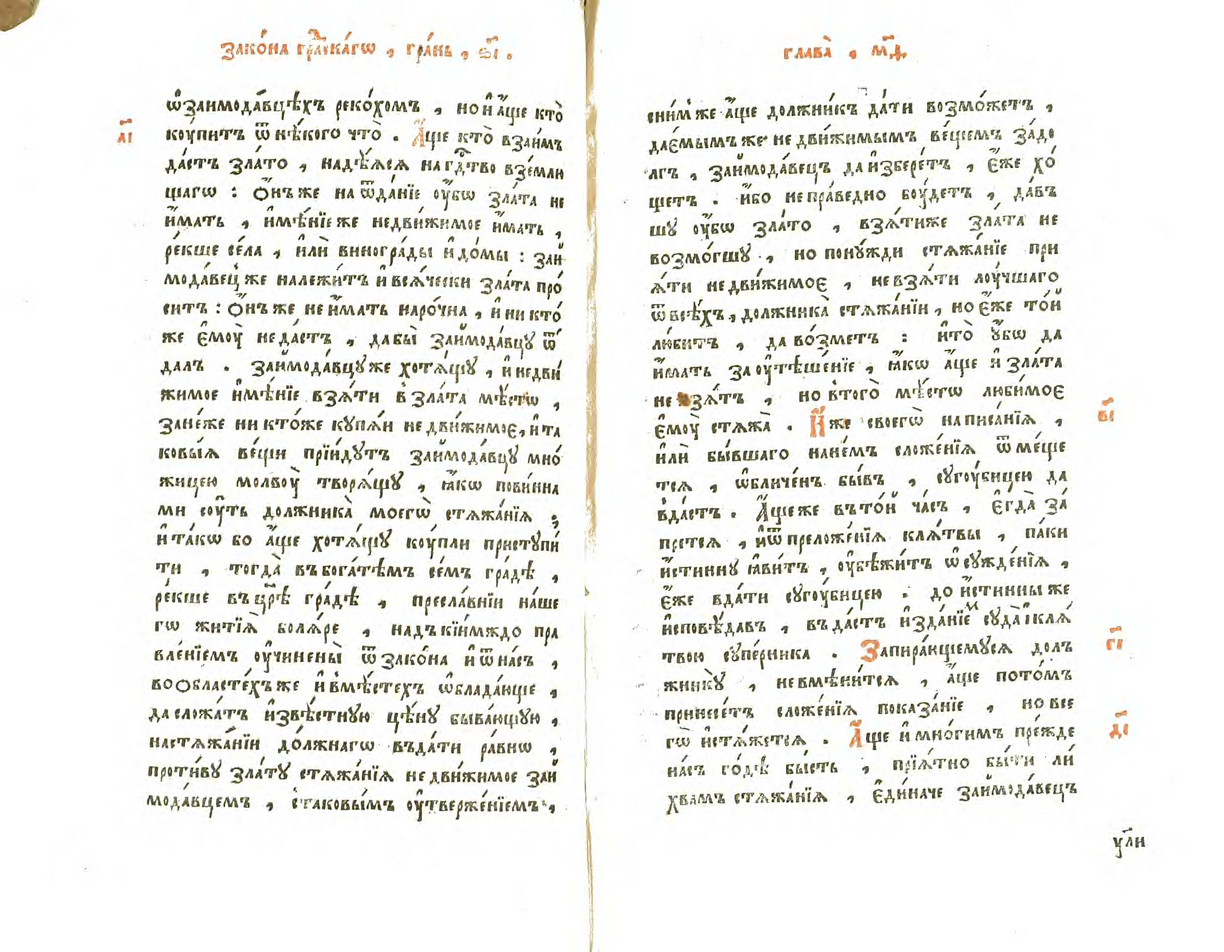 Зако́на гра́дскагѡ , гра́нь , ѕ҃і .
ѡ҆заимода́вцѣхъ реко́хомъ , но и҆ а҆́ще кто̀
а҃і
коу́питъ ѿ нѣ́кого что̀ . А҆́ще кто̀ взаи́мъ
да́стъ зла́то , надѣ́ѧсѧ на гд҇тво взе́мли
щагѡ : О҆́нъ же на ѿда́нїе ᲂу҆́бѡ зла́та не
и҆́мать , и҆мѣ́нїе же недви́жимое и҆́мать ,
ре́кше се́ла , и҆лѝ виногра́ды и҆ до́мы : заи
мода́вецъ же належи́тъ и҆ всѧ́чески зла́та про
ситъ : О҆́нъ же не и҆́мать наро́чна , и҆ ни кто́
же є҆моу̀ не да́стъ , да бы̀ заи҆мода́вцу ѿ
далъ . Заи҆мода́вцу же хотѧ́щу , и҆ недви́
жимое и҆мѣ́нїе взѧ́ти в зла́та мѣ́стѡ ,
зане́же ни кто́же купѧ́и не дви́жимое , и҆ та
ковы́ѧ ве́щи прїи́дутъ заи҆мода́вцу мно́
жицею молвоу̀ творѧ́щу , ꙗ҆́кѡ пови́нна
ми соу́ть должника̀ моегѡ̀ стѧжа́нїѧ ;
и҆ та́кѡ бо а҆́ще хотѧ́щу коу́пли пристꙋпи́
ти , тогда̀ въ бога́тѣмъ се́мъ гра́дѣ ,
ре́кше въ цр҇ѣ гра́дѣ , пресла́внїи на́ше
гѡ житїѧ̀ болѧ́ре , надъ кїи́мждо пра
вле́нїемъ ᲂу҆чинены̀ ѿ зако́на и҆ ѿ на́съ ,
во о҆бластѐхъ же и҆ в мѣ́стехъ ѡ҆блада́юще ,
да сложа́тъ и҆звѣ́стную цѣ́ну быва́ющую ,
на стѧжа́нїи до́лжнагѡ въда́ти ра́внѡ ,
проти́ву зла́ту стѧжа́нїѧ не дви́жимое заи
мода́вцемъ , с таковы́мъ ᲂу҆твержде́нїемъ ,
глава̀ , м҃д .
сни́мже а҆́ще должни́къ да́ти возмо́жетъ ,
дає́мымъ же не дви́жимымъ ве́щемъ за́до
лгъ , заи҆мода́вецъ да и҆збере́тъ , є҆́же хо́
щетъ . и҆́бо не пра́ведно боу́детъ , да́въ
шу ᲂу҆́бѡ зла́то , взѧ́ти же зла́та не
возмо́гшу , но пону́жди стѧжа́нїе при
ѧ́ти не дви́жимоє , не взѧ́ти лоу́чшаго
ѿ всѣ́хъ , должника̀ стѧжа́нїи , но є҆́же то́и
лю́битъ , да во́зметъ : и҆ то̀ ᲂу҆́бѡ да
и҆́мать за ᲂу҆тѣше́нїе , ꙗ҆́кѡ а҆́ще и҆ зла́та
не взѧ́тъ , но в того̀ мѣ́стѡ люби́мое
в҃і
є҆моу̀ стѧжа̀ . И҆́же своегѡ̀ написа́нїѧ ,
и҆лѝ бы́вшаго на не́мъ сложе́нїѧ ѿме́ще
тсѧ , ѡ҆бличе́нъ бы́въ , сугоу́бицею да
вда́стъ . А҆́ще же въ то́и ча́съ , є҆гда̀ за́
претсѧ , и҆ ѿ преложе́нїѧ клѧ́твы , па́ки
и҆́стинну ꙗ҆́витъ , ᲂу҆бѣжи́тъ ѡ҆суже́нїѧ ,
є҆́же вда́ти сугоу́бицею . до и҆́стинны же
и҆сповѣ́давъ , въда́стъ и҆зда́нїе суда̀ и҆ клѧ́
г҃і
твою супе́рника . Запира́ющемусѧ до́лъ
жнику̀ , не вмѣни́тсѧ , а҆́ще пото́мъ
принесе́тъ сложе́нїѧ показа́нїе , но все
д҃і
гѡ̀ и҆стѧ́жетсѧ . А҆́ще и҆ мно́гимъ пре́жде
на́съ го́дѣ бы́сть , прїѧ́тно бы́ти ли
хва́мъ стѧжа́нїѧ , є҆ди́наче заи҆мода́вецъ
ули